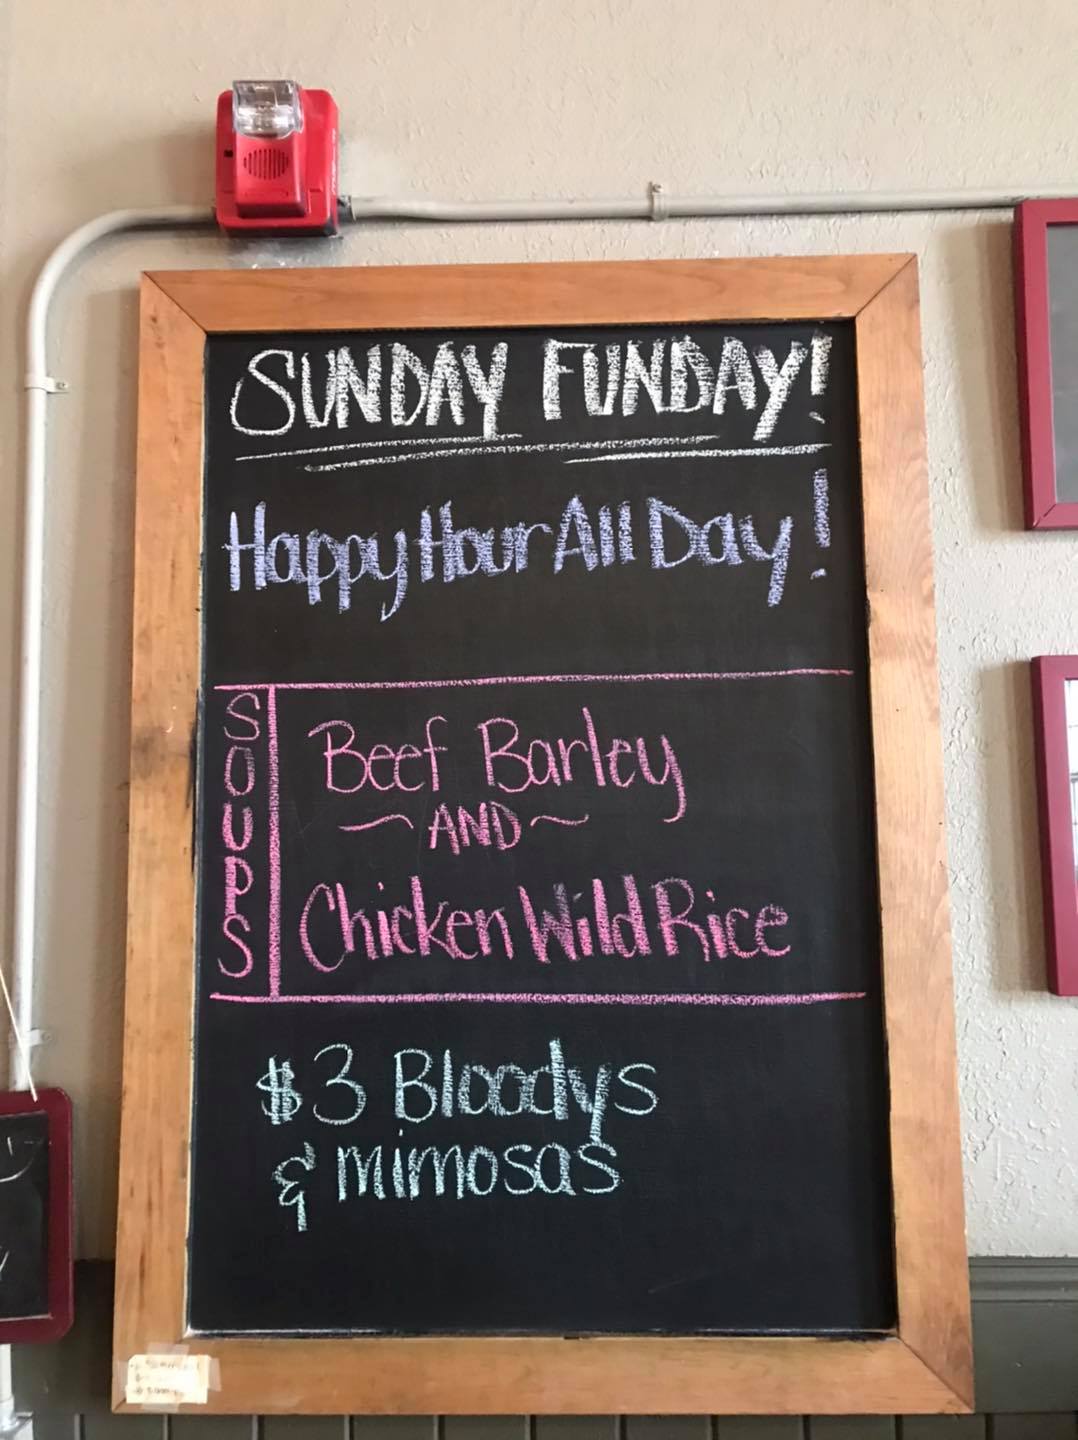 SUNDAY FUNDAY!
Happy Hour All Day!
SOUPS
Beef Barley
~ AND ~
Chicken Wild Rice
$3 Bloodys
& mimosas